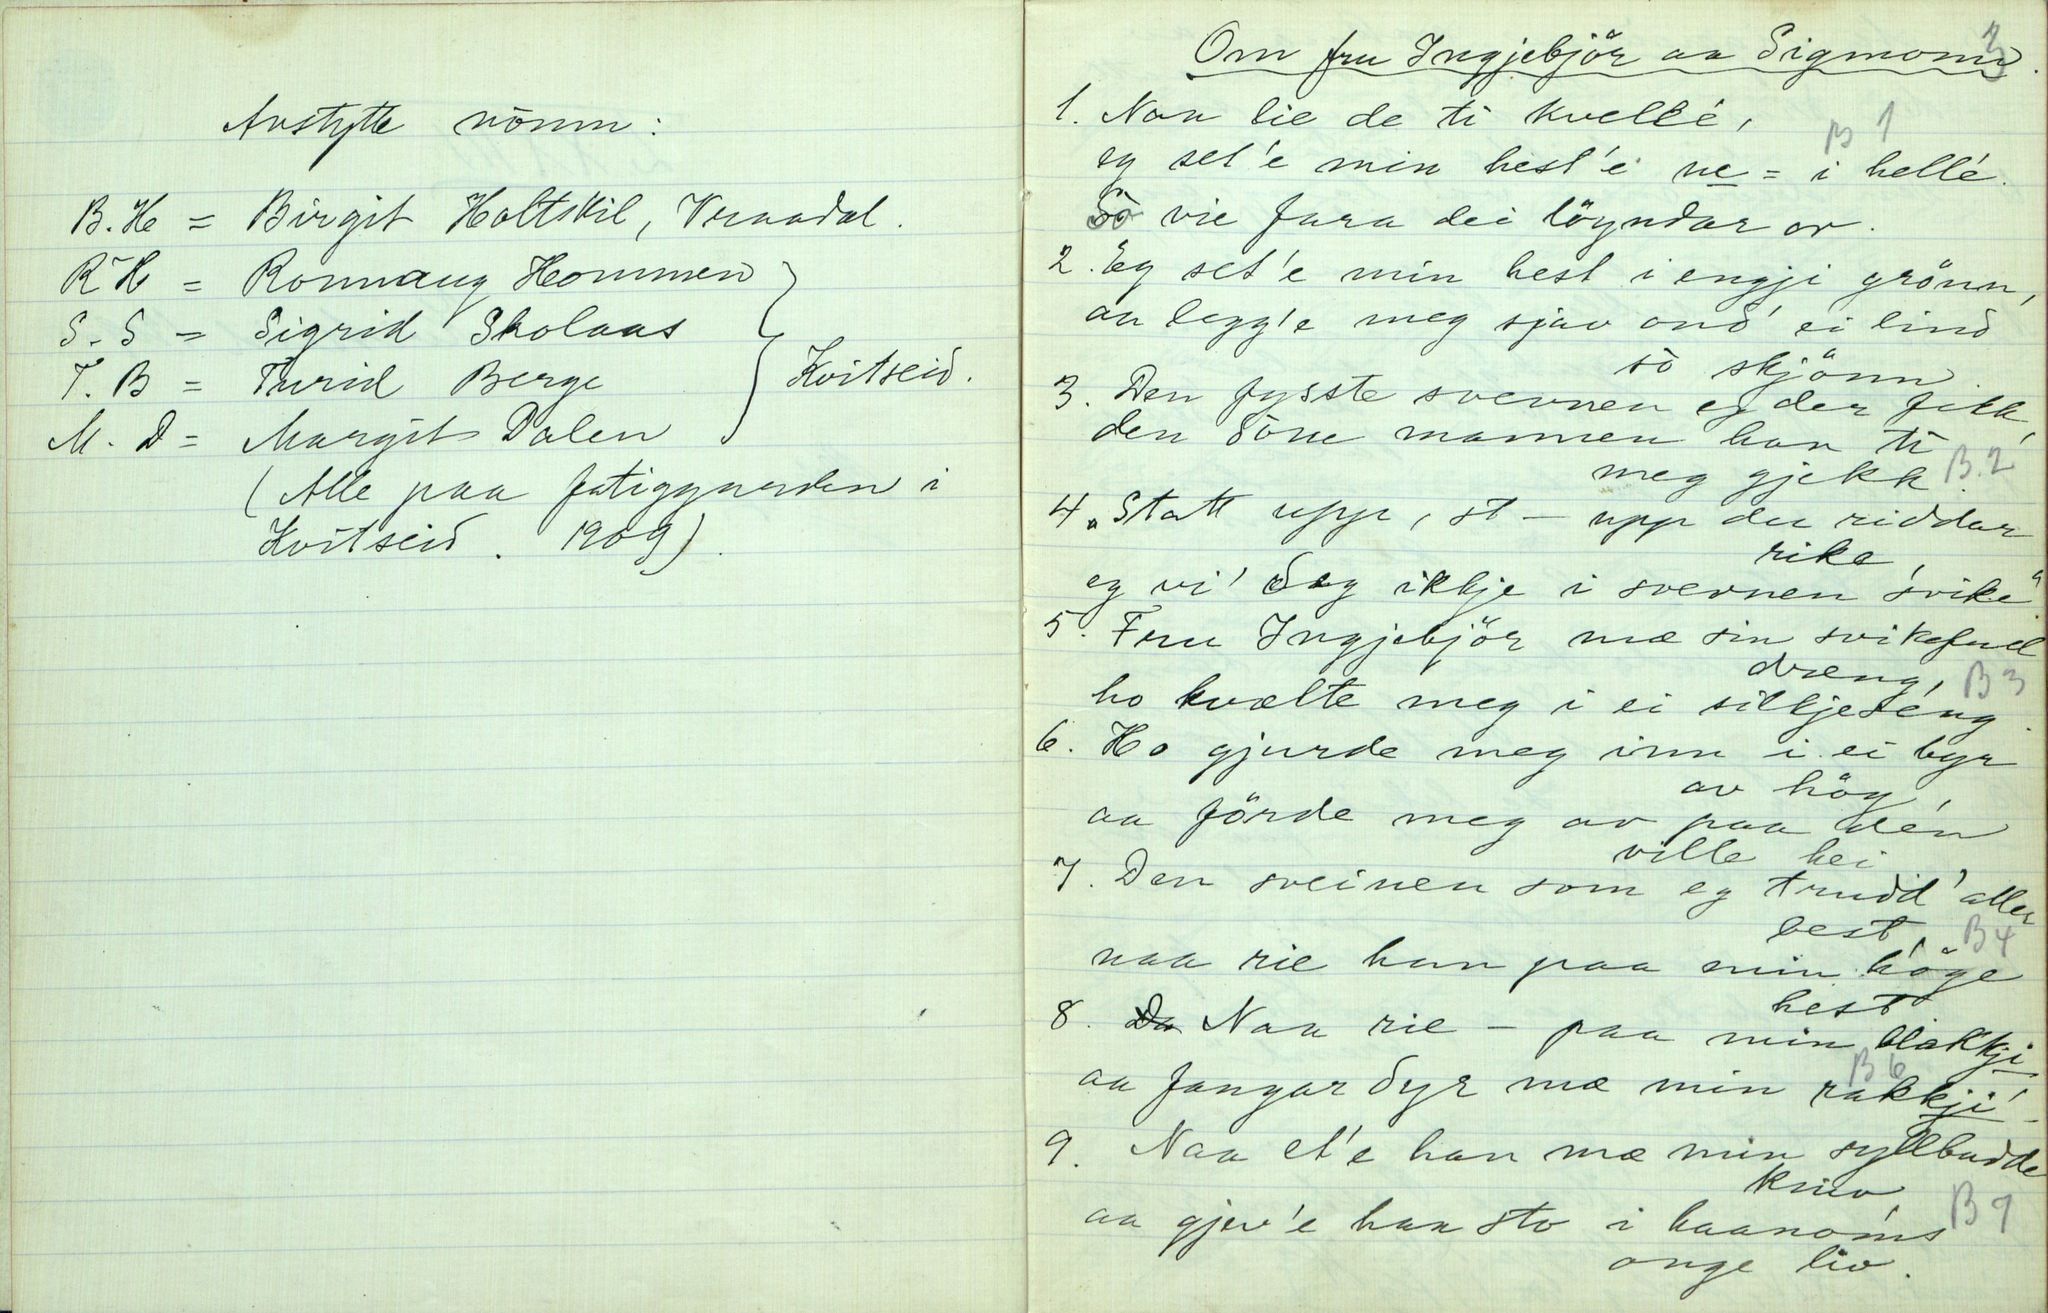 Avstytte nömn:
B.H = Birgit Holtskil, Vraadal.
R H = Ronnaug Hommen
S. S = Sigrid Skolaas
T. B = Turid Berge
Kvitseid.
M. D = Margit Dalen
(Alle paa fatiggarden i
Kvitseid. 1909).
3
Om fru Ingjebjör aa Sigmond.
1. Naa lie de ti kvelle',
B 1
eg set'e min hest'i ne = i helle'.
So vie fara dei löyndar or.
2. Eg set'e min hest i engji grönn,
aa legg'e meg sjav ond' ei lind
so skjönn.
3. Den fysste svevnen eg der fekk,
den döue mannen han ti
meg gjekk.
B.2
4. "Statt upp, st – upp du riddar
rike,
eg vi' deg ikkje i svevnen svike"
5. Fru Ingjebjör mæ sin svikefud
dreng,
B 3
ho kvælte meg i ei silkjeseng.
6. Ho gjurde meg inn i ei byr
av höy,
aa förde meg av paa den
ville hei
7. Den sveinen som eg trudd' aller
best,
B 4
naa rie han paa min höge
hest
8. Da Naa rie – paa min blakkji
aa fangar dyr mæ min rakkji'
B 6
9. Naa et'e han mæ min syllbudde
kniv
aa gjev'e han sto i baanoms
onge liv.
B 9